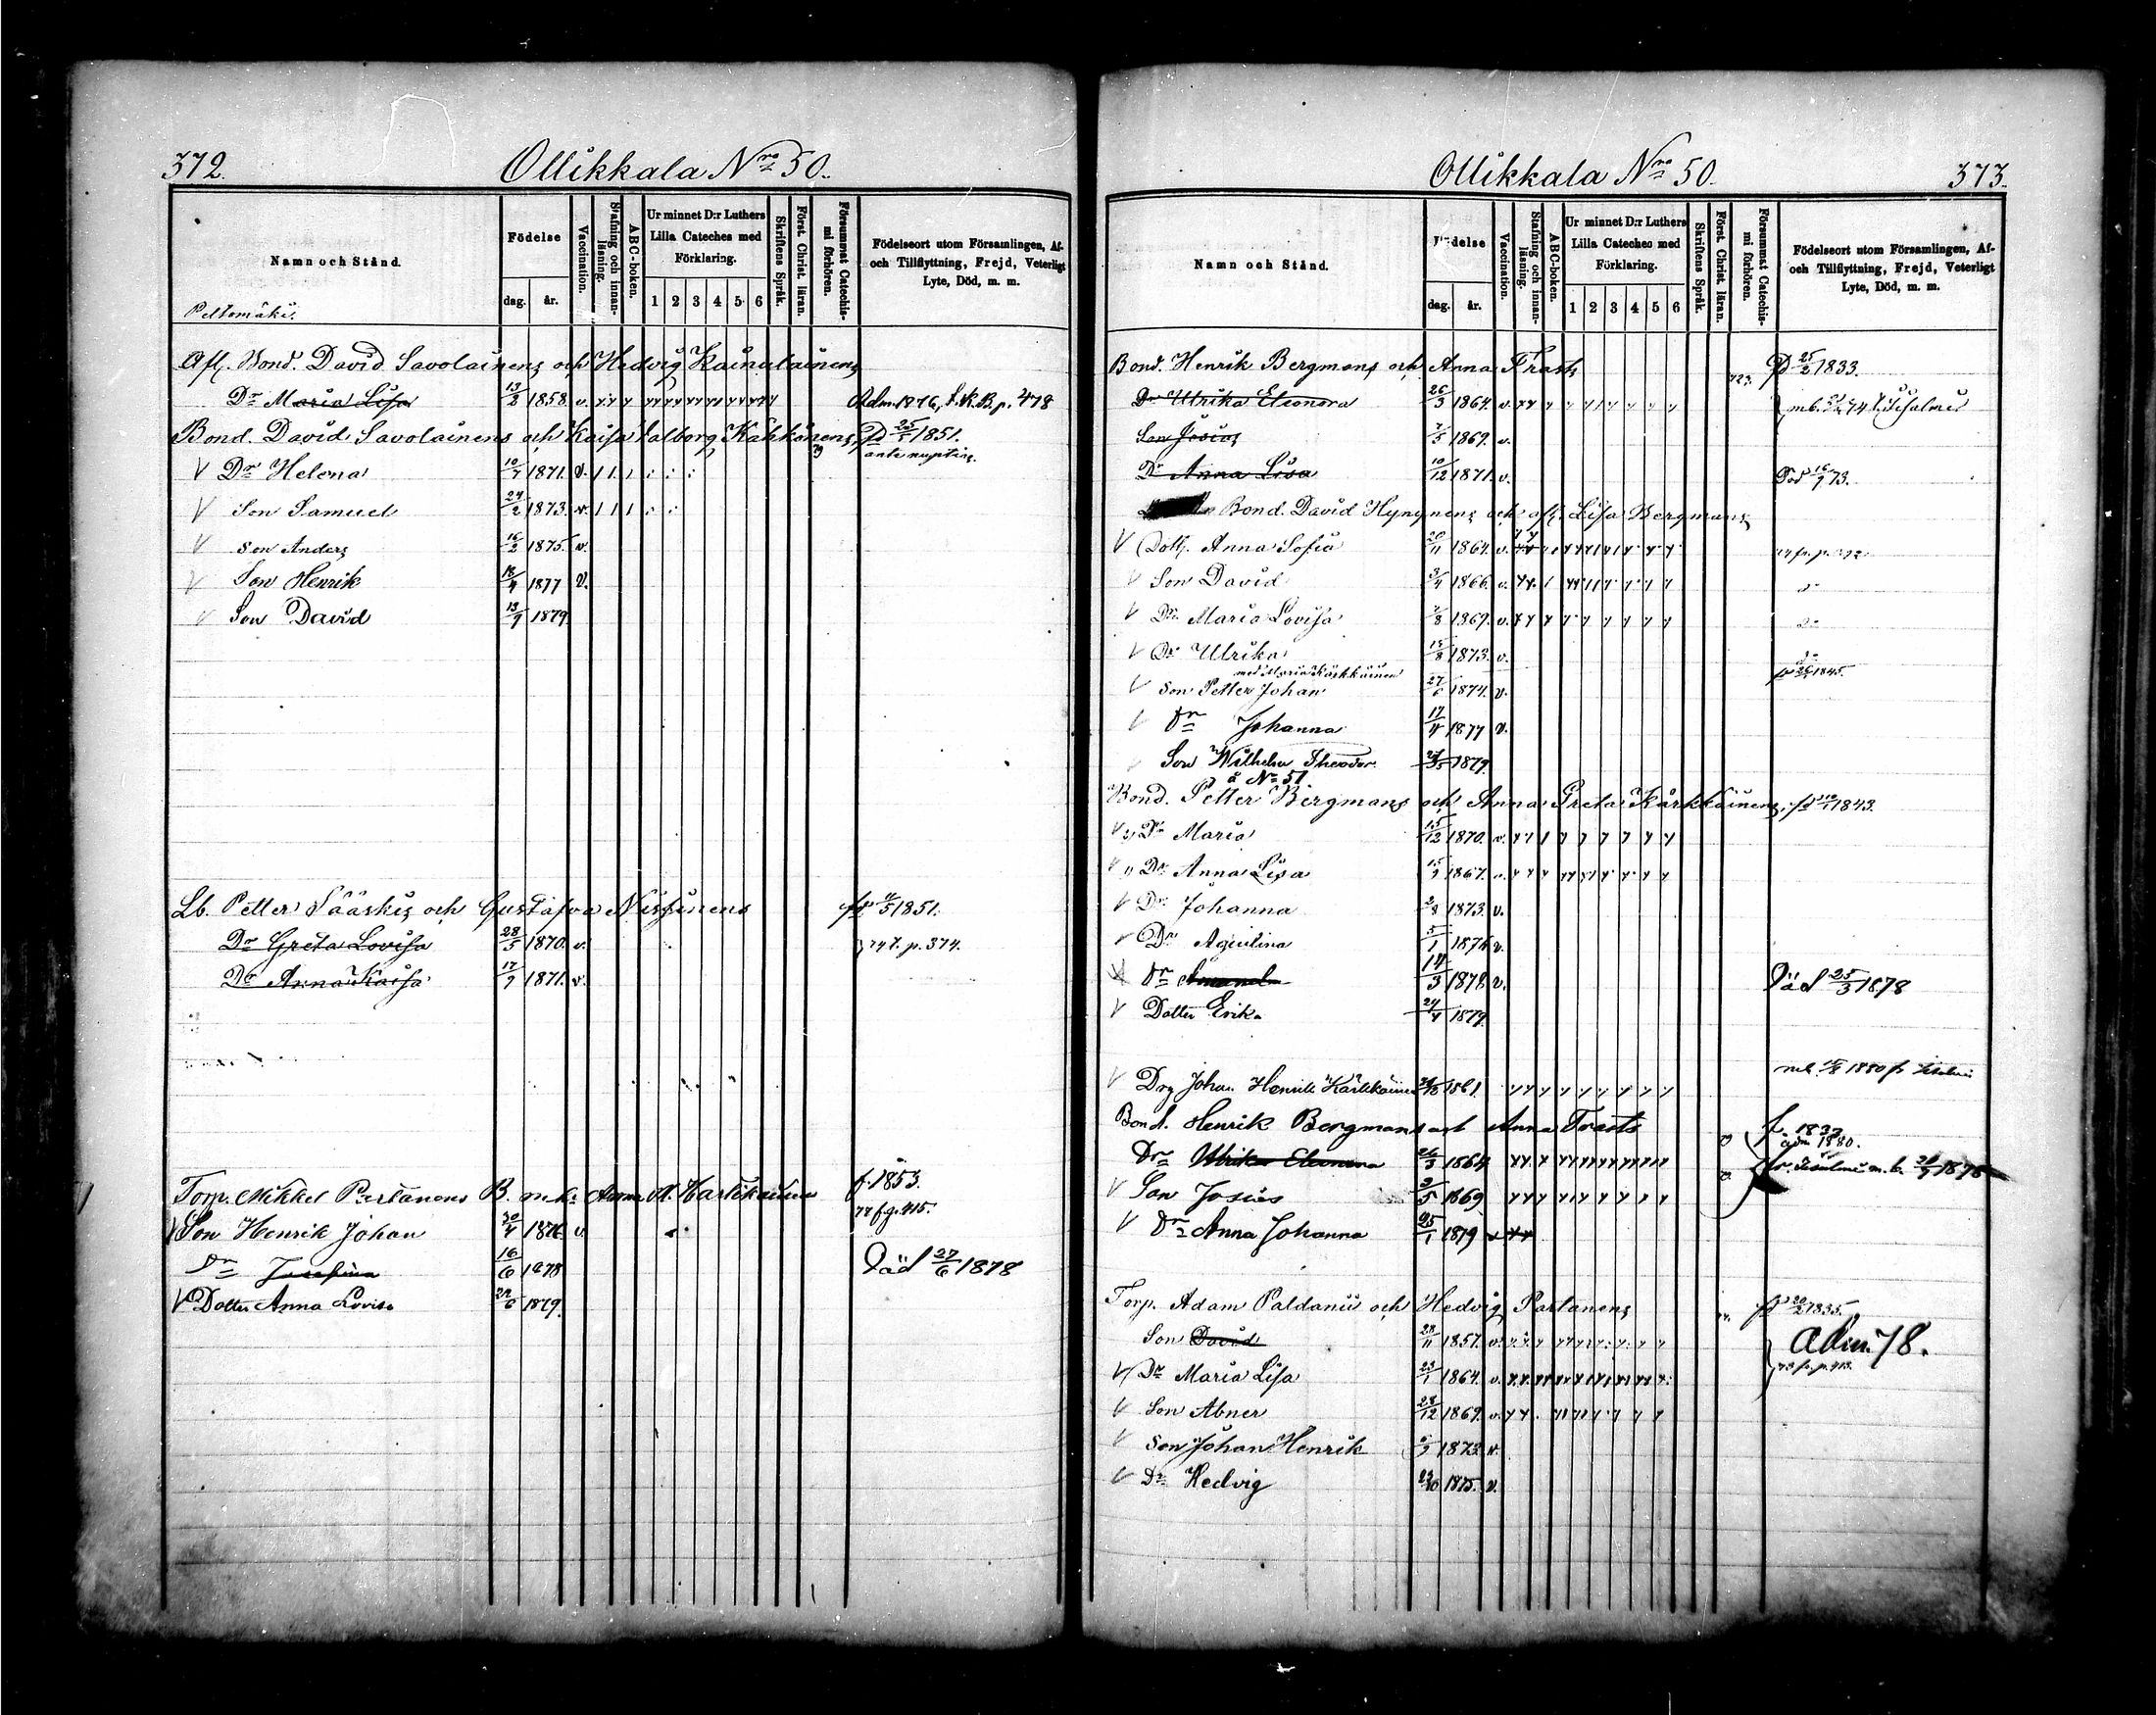 372.
Ollikkala Nro 50.
Namn och Stånd.
Födelse
dag.
år.
Vaccination.
Stafning och innanläsning.
ABC-boken.
Ur minnet D:r Luthers
Lilla Cateches med
Förklaring.
1 2 3 4 5 6
Skriftens Språk.
Först. Christ. läran.
Försummat Catechismi förhören.
Födelseort utom Församlingen, Af-
och Tillflyttning, Frejd, Veterligt
Lyte, Död, m. m.
Peltomäki.
Afl. Bond. David Savolainens och Hedvig Kainulainens
Dr Maria Lisa 13/2 1858. v. Adm. 1876, S.K.B. p. 478
Bond. David Savolainens och Kaisa Valborg Kähkönens 25/1 1851.
ante nuptias.
V Dr Helena 10/7 1871. v.
V Son Samuel 24/2 1873. v.
V Son Anders 16/2 1875. v.
V Son Henrik 18/4 1877 v.
V Son David 13/9 1879
Lb. Petter Sääskis och Gustafva Nissinens 1851.
Dr Greta Lovisa 28/5 1870. v. 747. p. 374.
Dr Anna Kaisa 17/9 1871. v.
Torp. Mikkel Partanens B. m. h. Anna M. Kärkkäinen f. 1853.
77 f. p. 415.
V Son Henrik Johan 30/4 1876 v.
Dr Josefina 16/6 1878 Död 27/6 1878
V Dotter Anna Lovisa 1879.
Ollikkala Nro 50.
373.
Namn och Stånd.
Födelse
dag.
år.
Vaccination.
Stafning och innanläsning.
ABC-boken.
Ur minnet D:r Luthers
Lilla Cateches med
Förklaring.
1 2 3 4 5 6
Skriftens Språk.
Först. Christ. läran.
Försummat Catechismi förhören.
Födelseort utom Församlingen, Af-
och Tillflyttning, Frejd, Veterligt
Lyte, Död, m. m.
Bond. Henrik Bergmans och Anna Trasts 25/2 1833.
Dr Ulrika Eleonora 26/3 1864. v. Iisalmi
Son Josias 7/5 1869. v.
Dr Anna Lisa 10/12 1871. v. Död 16/9 73.
Bond. David Hyngnens och afl. Lisa Bergmans
V Dott. Anna Sofia 20/11 1864. v.
V Son David 3/4 1866. v.
V Dr Maria Lovisa 7/8 1869. v.
V Dr Ulrika 15/8 1873. v.
med Maria Kärkkäinen 1845.
V Son Petter Johan 27/6 1874. v.
V Dr Johanna 17/4 1877 v.
Son Wilhelm Theodor 1879.
å No 51
Bond. Petter Bergmans och Anna Greta Kärkkäinens 1843.
V Dr Maria 15/12 1870. v.
V Dr Anna Lisa 15/9 1867. v.
V Dr Johanna 2/8 1873. v.
V Dr Agulina 5/1 1876 v.
Dr Amanda 14/3 1878 v. Död 25/3 1878
V Dotter Erika 24/4 1879
V Drg Johan Henrik Kärkkäinen 1861. 1880 fr. Iisalmi
Bond. Henrik Bergmans och Anna Trasts f. 1833
adm 1880.
Dr Ulrika Eleonora 26/3 1864 fr. Iisalmi m. b. 1878
V Son Josias 2/5 1869
V Dr Anna Johanna 25/1 1879
Torp. Adam Paldanii och Hedvig Partanens 20/2 1835.
Son David 28/11 1857. v. Adm. 78.
V Dr Maria Lisa 23/1 1864. v.
V Son Abner 28/12 1869. v.
V Son Johan Henrik 1873 v.
V Dr Hedvig 1875. v.